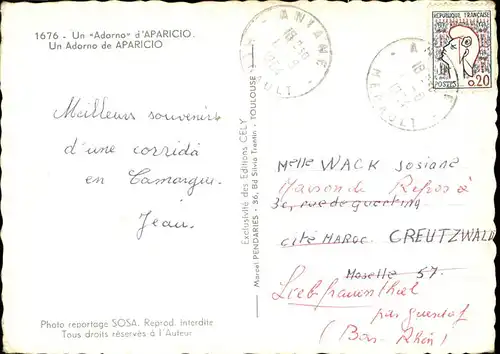 1676 - Un "Adorno" d'APARICIO.
Un Adorno de APARICIO
Meilleurs souvenirs
d'une corrida
en Camargue.
Jean.
Photo reportage SOSA. Reprod. interdite
Tous droits réservés à l'Auteur
Exclusivité des Editions CELY
Marcel PENDARIES - 36, Bd Silvio Trentin - TOULOUSE
REPUBLIQUE FRANCAISE
POSTES 0,20
Melle WACK Josiane
Maison de Repos à
3c, rue de
cité MAROC. CREUTZWALD
Moselle 57.
par
(Bas-Rhin)